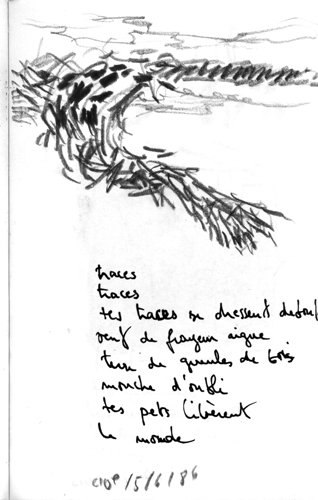 traces
traces
tes traces se dressent debout
vent de frayeur aigue
de gueules de bois
mouche d'oubli
tes pets libèrent
le monde
/5/6/86